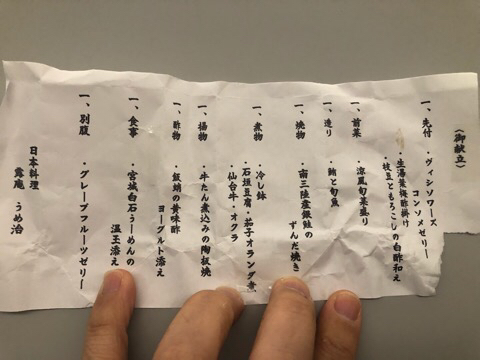 （御献立）
一、先付 ・ヴィシソワーズ
コンソメゼリー
・生湯葉梅酢掛け
・枝豆ともろこしの白酢和え
一、前菜 ・涼風旬菜盛り
一、造り ・鮪と旬魚
一、焼物 ・南三陸産銀鮭の
ずんだ焼き
一、煮物 ・冷し鉢
・石垣豆腐・茄子オランダ煮
・仙台牛・オクラ
一、揚物 ・牛たん煮込みの陶板焼
一、酢物 ・飯蛸の黄味酢
ヨーグルト添え
一、食事 ・宮城白石うーめんの
温玉添え
一、別腹 ・グレープフルーツゼリー
日本料理
露庵 うめ治